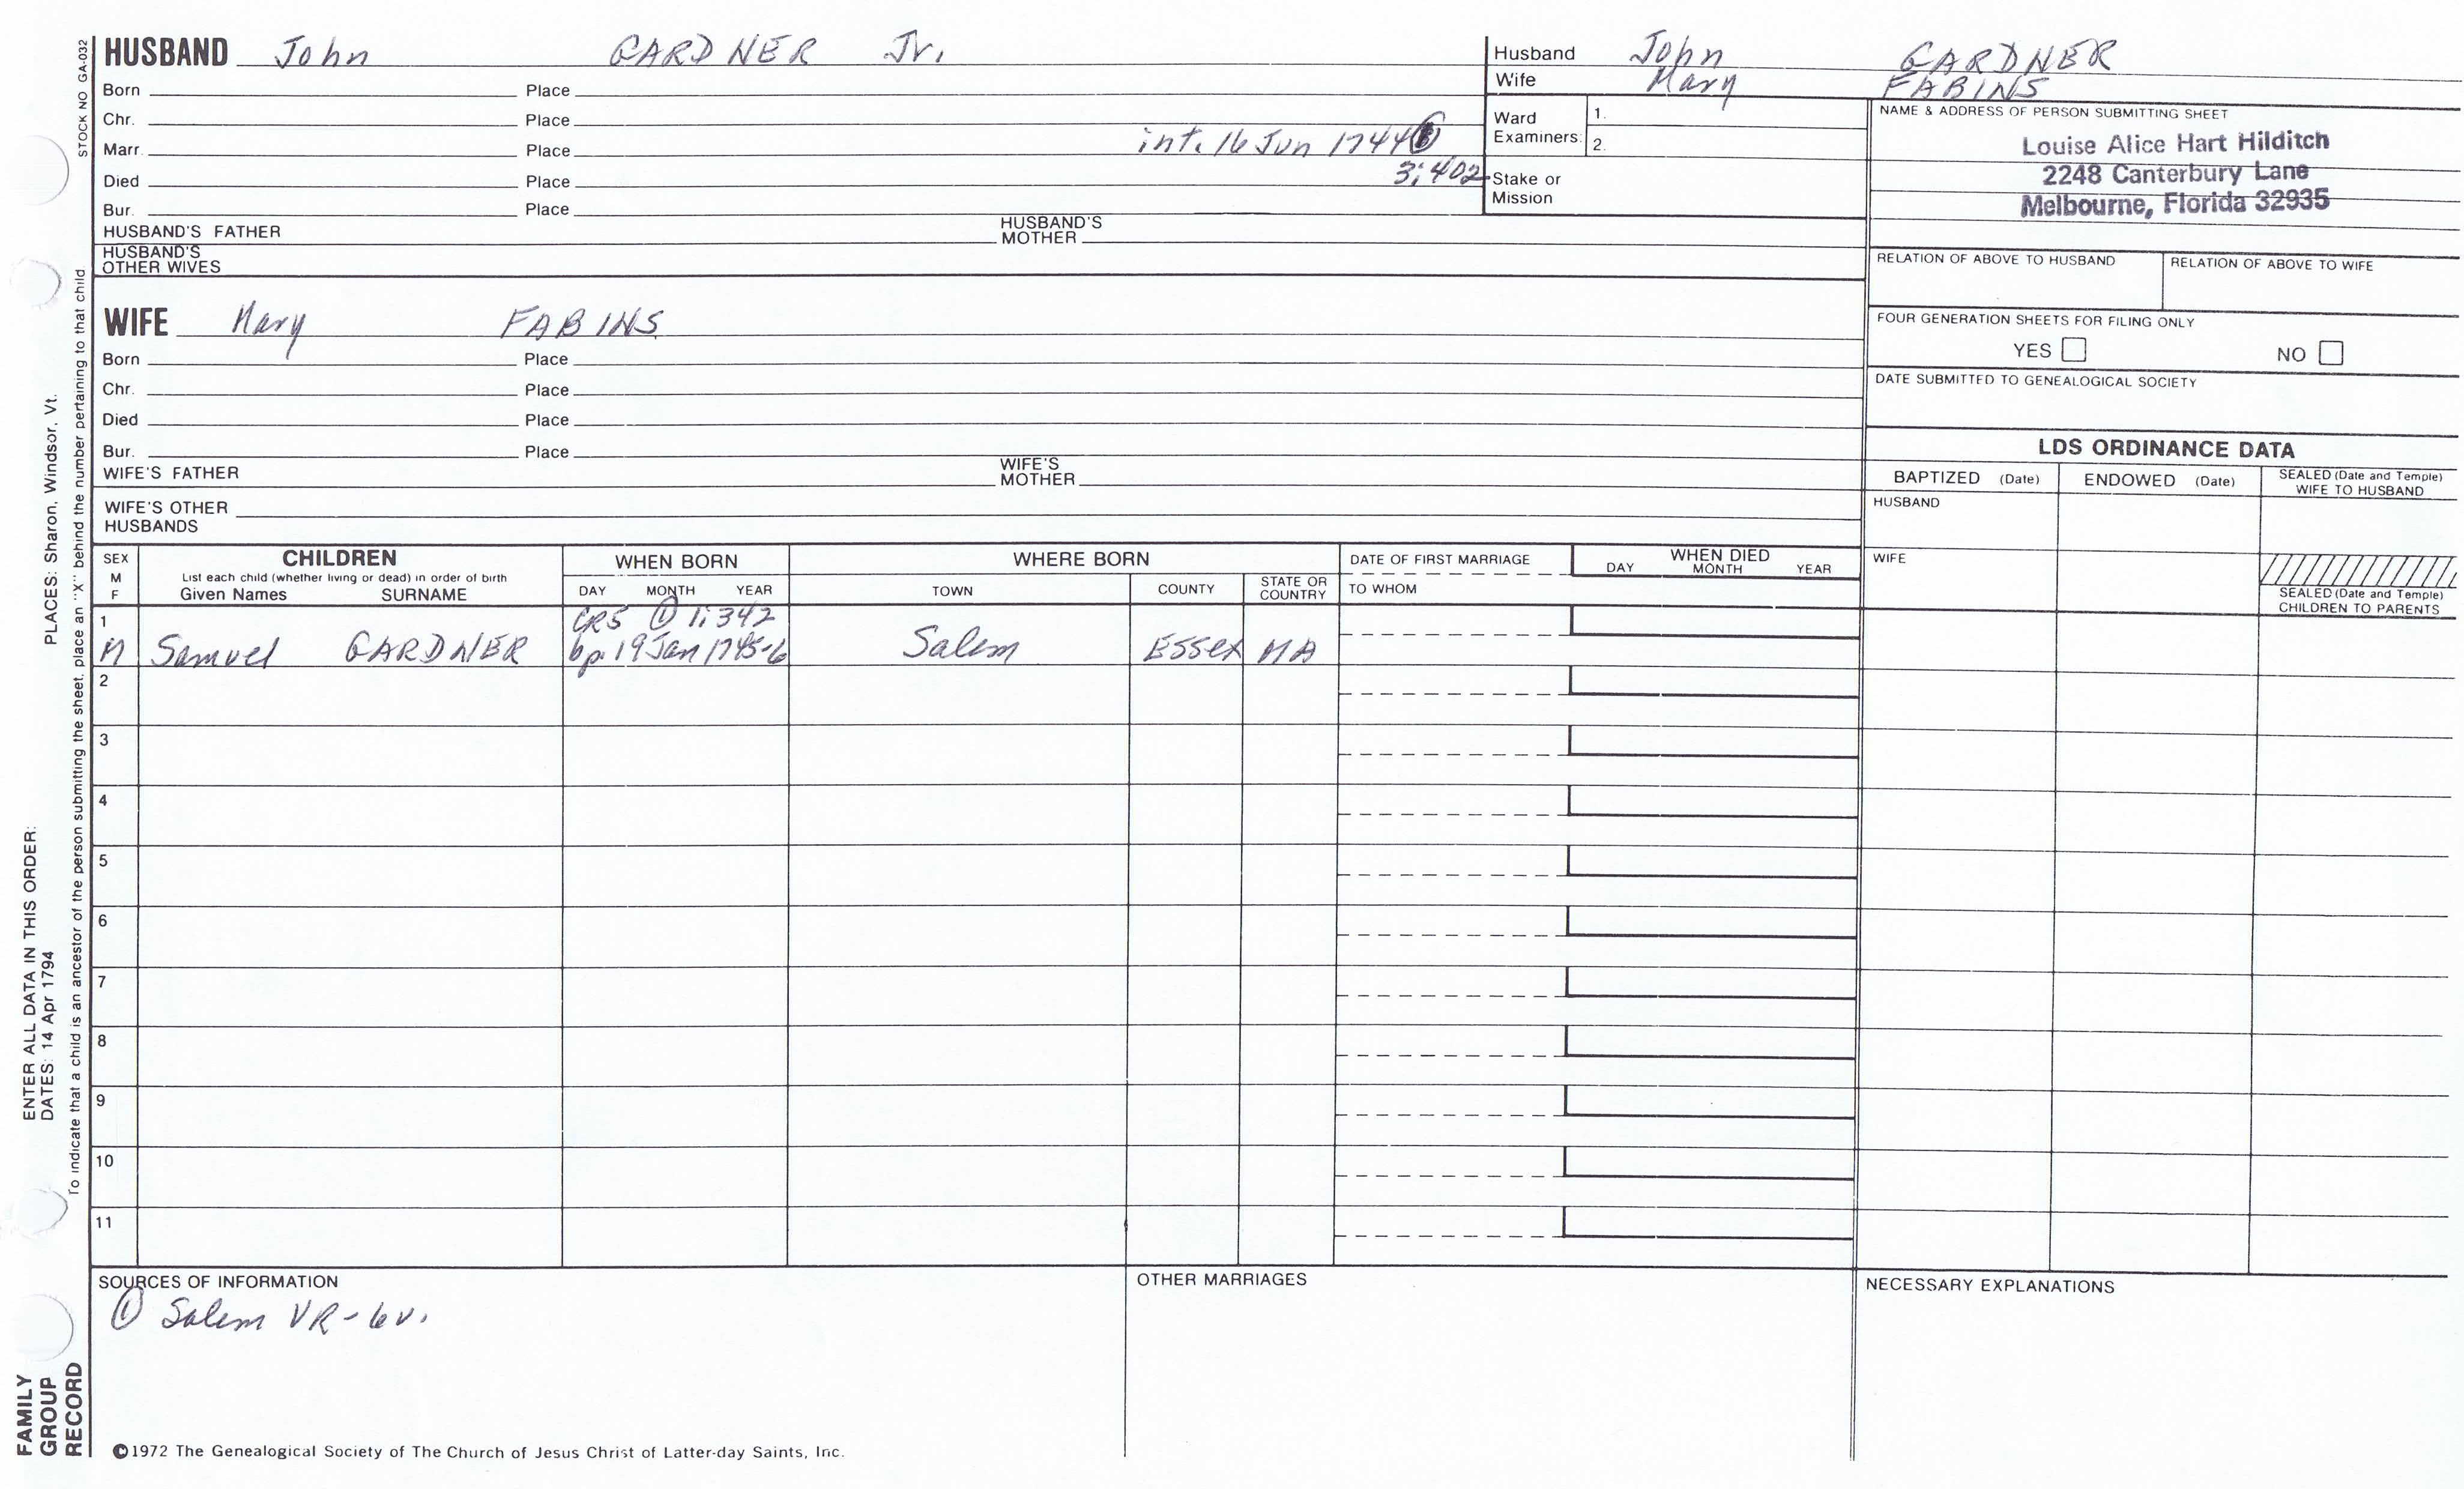 STOCK NO GA-032
HUSBAND John GARDNER Jr.
Born Place
Chr. Place
Marr. Place int. 16 Jun 1744 ①
Died Place 3:402
Bur. Place
HUSBAND'S FATHER HUSBAND'S MOTHER
HUSBAND'S OTHER WIVES
WIFE Mary FABINS
Born Place
Chr. Place
Died Place
Bur. Place
WIFE'S FATHER WIFE'S MOTHER
WIFE'S OTHER HUSBANDS
Husband John GARDNER
Wife Mary FABINS
Ward Examiners: 1.
2.
Stake or Mission
NAME & ADDRESS OF PERSON SUBMITTING SHEET
Louise Alice Hart Hilditch
2248 Canterbury Lane
Melbourne, Florida 32935
RELATION OF ABOVE TO HUSBAND RELATION OF ABOVE TO WIFE
FOUR GENERATION SHEETS FOR FILING ONLY
YES NO
DATE SUBMITTED TO GENEALOGICAL SOCIETY
LDS ORDINANCE DATA
BAPTIZED (Date) ENDOWED (Date) SEALED (Date and Temple) WIFE TO HUSBAND
HUSBAND
WIFE
SEALED (Date and Temple) CHILDREN TO PARENTS
SEX M F
CHILDREN
List each child (whether living or dead) in order of birth
Given Names SURNAME
WHEN BORN
DAY MONTH YEAR
WHERE BORN
TOWN COUNTY STATE OR COUNTRY
DATE OF FIRST MARRIAGE
TO WHOM
WHEN DIED
DAY MONTH YEAR
1 CR5 ① 1:342
M Samuel GARDNER bp. 19 Jan 1745-6 Salem Essex MA
2
3
4
5
6
7
8
9
10
11
SOURCES OF INFORMATION
① Salem VR-6v.
OTHER MARRIAGES
NECESSARY EXPLANATIONS
©1972 The Genealogical Society of The Church of Jesus Christ of Latter-day Saints, Inc.
ENTER ALL DATA IN THIS ORDER:
DATES: 14 Apr 1794 PLACES: Sharon, Windsor, Vt.
To indicate that a child is an ancestor of the person submitting the sheet, place an "X" behind the number pertaining to that child
FAMILY
GROUP
RECORD